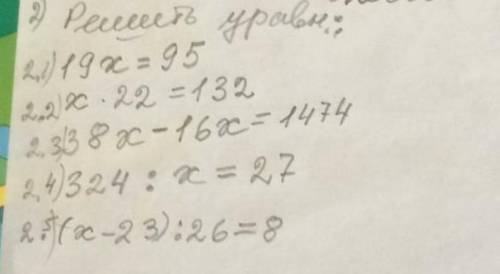 2) Решить уравн.:
2.1) 19x = 95
2.2) x · 22 = 132
2.3) 38x - 16x = 1474
2.4) 324 : x = 27
2.5) (x - 23) : 26 = 8